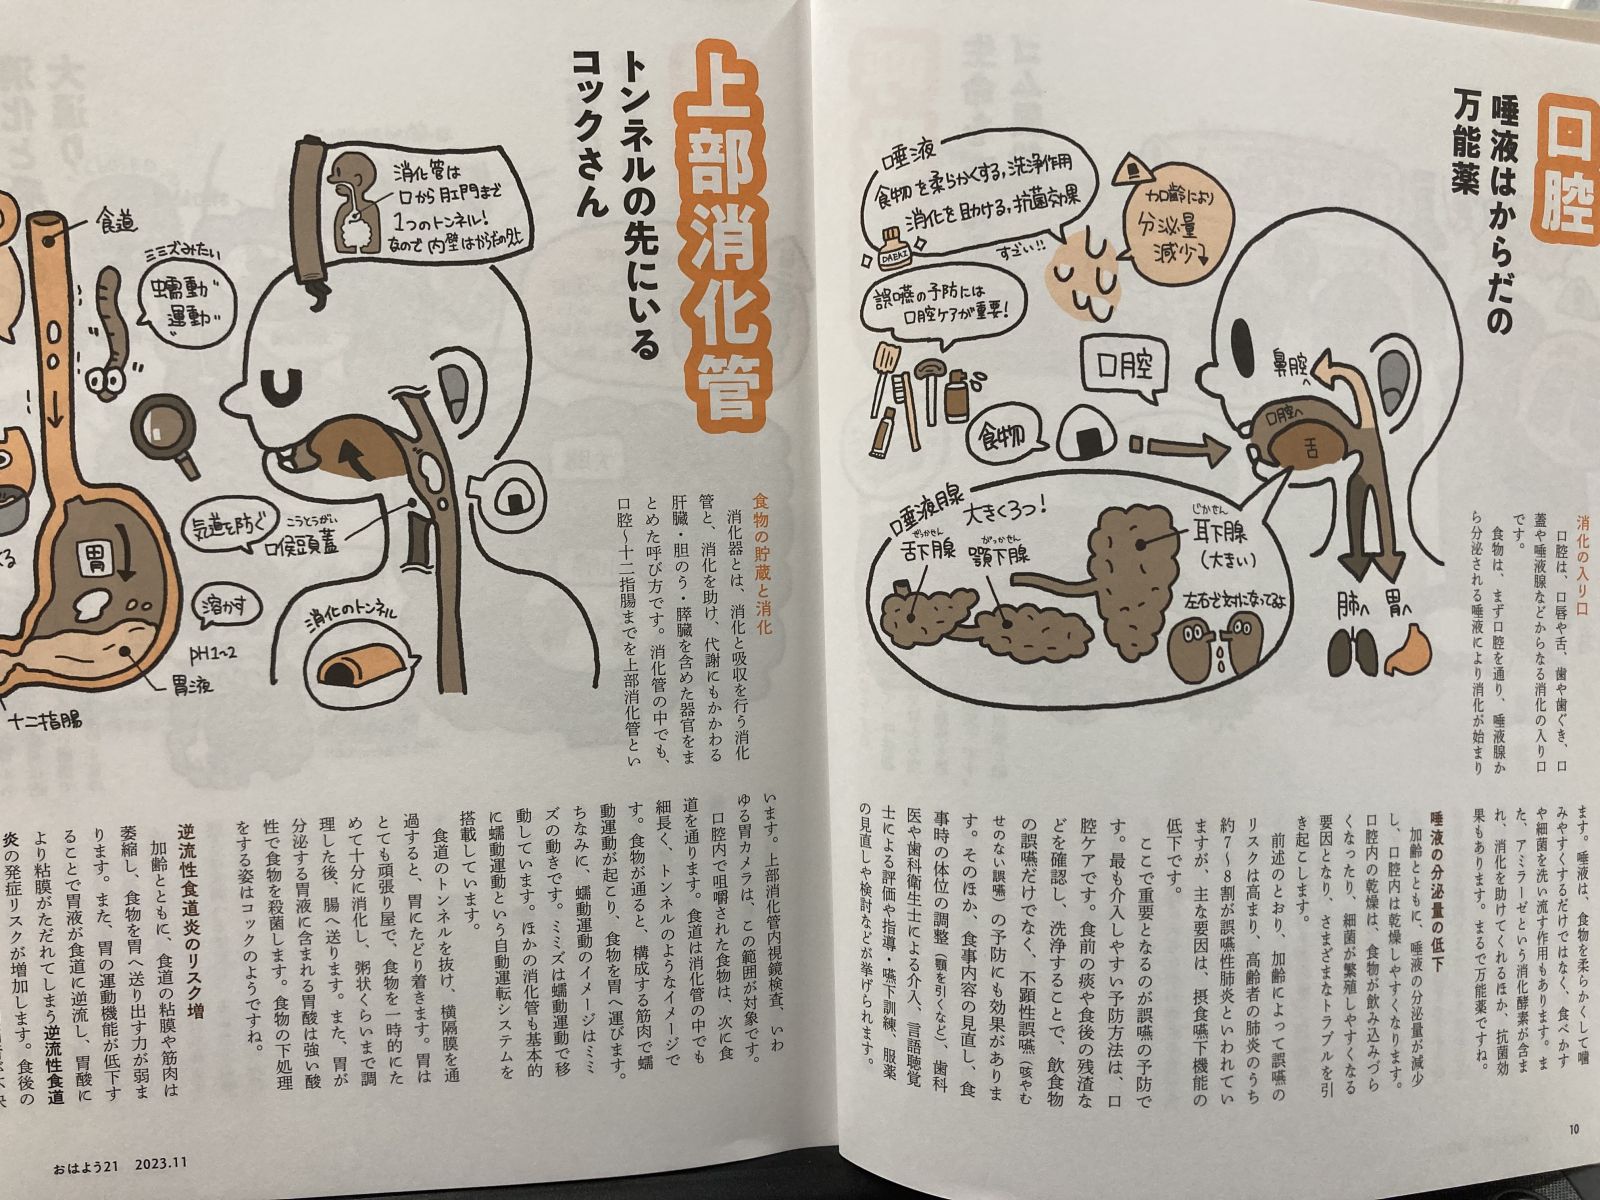 口腔
唾液はからだの
万能薬
唾液
食物を柔らかくする,洗浄作用
消化を助ける,抗菌効果
すごい!!
DAEKI
加齢により
分泌量
減少↓
誤嚥の予防には
口腔ケアが重要!
口腔
食物
鼻腔へ
口腔へ
舌
肺へ
胃へ
唾液腺
大きく3つ!
ぜっかせん
舌下腺
がっかせん
顎下腺
じかせん
耳下腺
(大きい)
左右で対になってるよ
消化の入り口
口腔は、口唇や舌、歯や歯ぐき、口
蓋や唾液腺などからなる消化の入り口
です。
食物は、まず口腔を通り、唾液腺か
ら分泌される唾液により消化が始まり
ます。唾液は、食物を柔らかくして噛
みやすくするだけではなく、食べかす
や細菌を洗い流す作用もあります。ま
た、アミラーゼという消化酵素が含ま
れ、消化を助けてくれるほか、抗菌効
果もあります。まるで万能薬ですね。
唾液の分泌量の低下
加齢とともに、唾液の分泌量が減少
し、口腔内は乾燥しやすくなります。
口腔内の乾燥は、食物が飲み込みづら
くなったり、細菌が繁殖しやすくなる
要因となり、さまざまなトラブルを引
き起こします。
前述のとおり、加齢によって誤嚥の
リスクは高まり、高齢者の肺炎のうち
約7～8割が誤嚥性肺炎といわれてい
ますが、主な要因は、摂食嚥下機能の
低下です。
ここで重要となるのが誤嚥の予防で
す。最も介入しやすい予防方法は、口
腔ケアです。食前の痰や食後の残渣な
どを確認し、洗浄することで、飲食物
の誤嚥だけでなく、不顕性誤嚥(咳やむ
せのない誤嚥)の予防にも効果がありま
す。そのほか、食事内容の見直し、食
事時の体位の調整(顎を引くなど)、歯科
医や歯科衛生士による介入、言語聴覚
士による評価や指導・嚥下訓練、服薬
の見直しや検討などが挙げられます。
10
上部消化管
トンネルの先にいる
コックさん
消化管は
口から肛門まで
1つのトンネル!
なので内壁はからだの外
食道
ミミズみたい
蠕動
運動
気道を防ぐ
こうとうがい
喉頭蓋
胃
溶かす
pH1~2
胃液
十二指腸
消化のトンネル
食物の貯蔵と消化
消化器とは、消化と吸収を行う消化
管と、消化を助け、代謝にもかかわる
肝臓・胆のう・膵臓を含めた器官をま
とめた呼び方です。消化管の中でも、
口腔～十二指腸までを上部消化管とい
います。上部消化管内視鏡検査、いわ
ゆる胃カメラは、この範囲が対象です。
口腔内で咀嚼された食物は、次に食
道を通ります。食道は消化管の中でも
細長く、トンネルのようなイメージで
す。食物が通ると、構成する筋肉で蠕
動運動が起こり、食物を胃へ運びます。
ちなみに、蠕動運動のイメージはミミ
ズの動きです。ミミズは蠕動運動で移
動しています。ほかの消化管も基本的
に蠕動運動という自動運転システムを
搭載しています。
食道のトンネルを抜け、横隔膜を通
過すると、胃にたどり着きます。胃は
とても頑張り屋で、食物を一時的にた
めて十分に消化し、粥状くらいまで調
理した後、腸へ送ります。また、胃が
分泌する胃液に含まれる胃酸は強い酸
性で食物を殺菌します。食物の下処理
をする姿はコックのようですね。
逆流性食道炎のリスク増
加齢とともに、食道の粘膜や筋肉は
萎縮し、食物を胃へ送り出す力が弱ま
ります。また、胃の運動機能が低下す
ることで胃液が食道に逆流し、胃酸に
より粘膜がただれてしまう逆流性食道
炎の発症リスクが増加します。食後の
おはよう21 2023.11